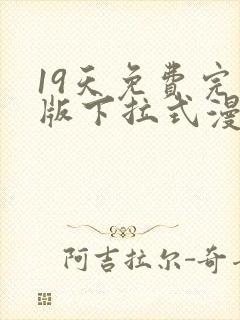 19天免費完
版下拉式漫
阿吉拉尔-奇